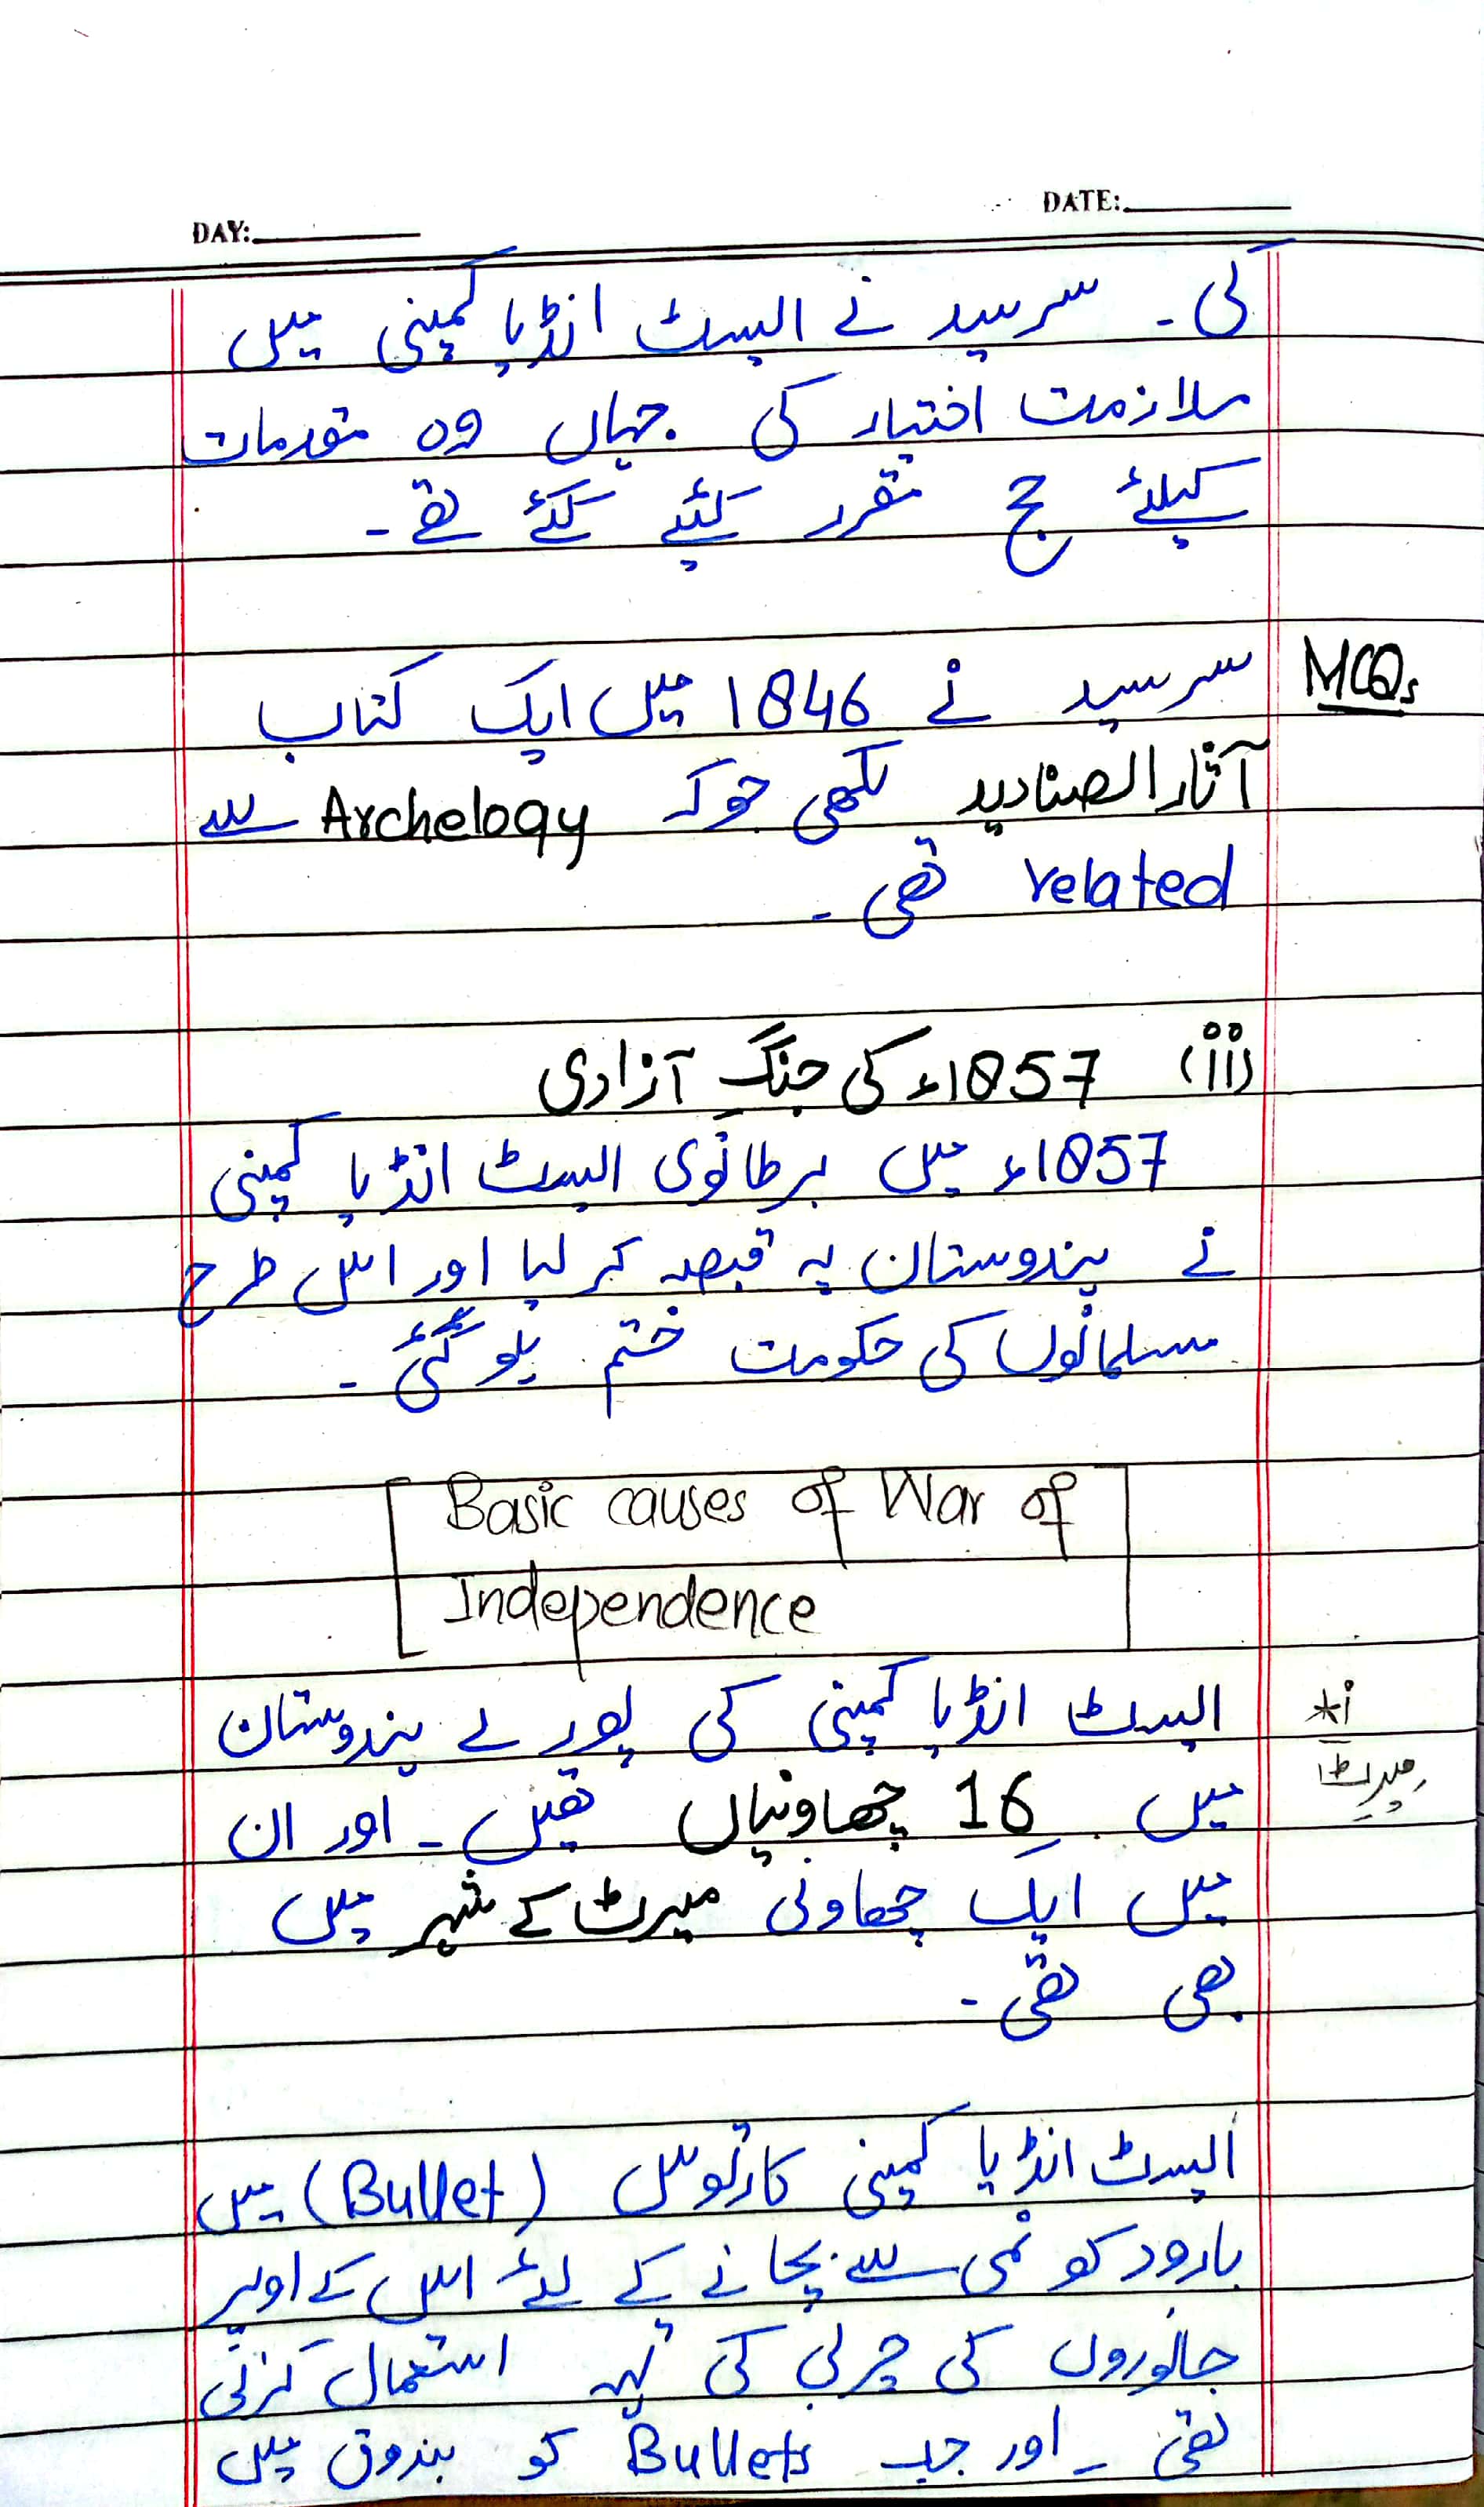 DAY: DATE:
کی۔ سرسید نے ایسٹ انڈیا کمپنی میں
ملازمت اختیار کی جہاں وہ مقدمات
کیلئے جج مقرر کئیے گئے تھے۔
MCQs
سرسید نے 1846 میں ایک کتاب
آثار الصنادید لکھی جوکہ Archelogy سے
related تھی۔
(ii) 1857ء کی جنگِ آزادی
1857ء میں برطانوی ایسٹ انڈیا کمپنی
نے ہندوستان پہ قبضہ کر لیا اور اس طرح
مسلمانوں کی حکومت ختم ہو گئی۔
Basic causes of War of
Independence
*i
میرٹ
ایسٹ انڈیا کمپنی کی پورے ہندوستان
میں 16 چھاونیاں تھیں۔ اور ان
میں ایک چھاونی میرٹ کے شہر میں
بھی تھی۔
ایسٹ انڈیا کمپنی کارتوس (Bullet) میں
بارود کو نمی سے بچانے کے لئے اس کے اوپر
جانوروں کی چربی کی تہہ استعمال کرتی
تھی۔ اور جب Bullets کو بندوق میں